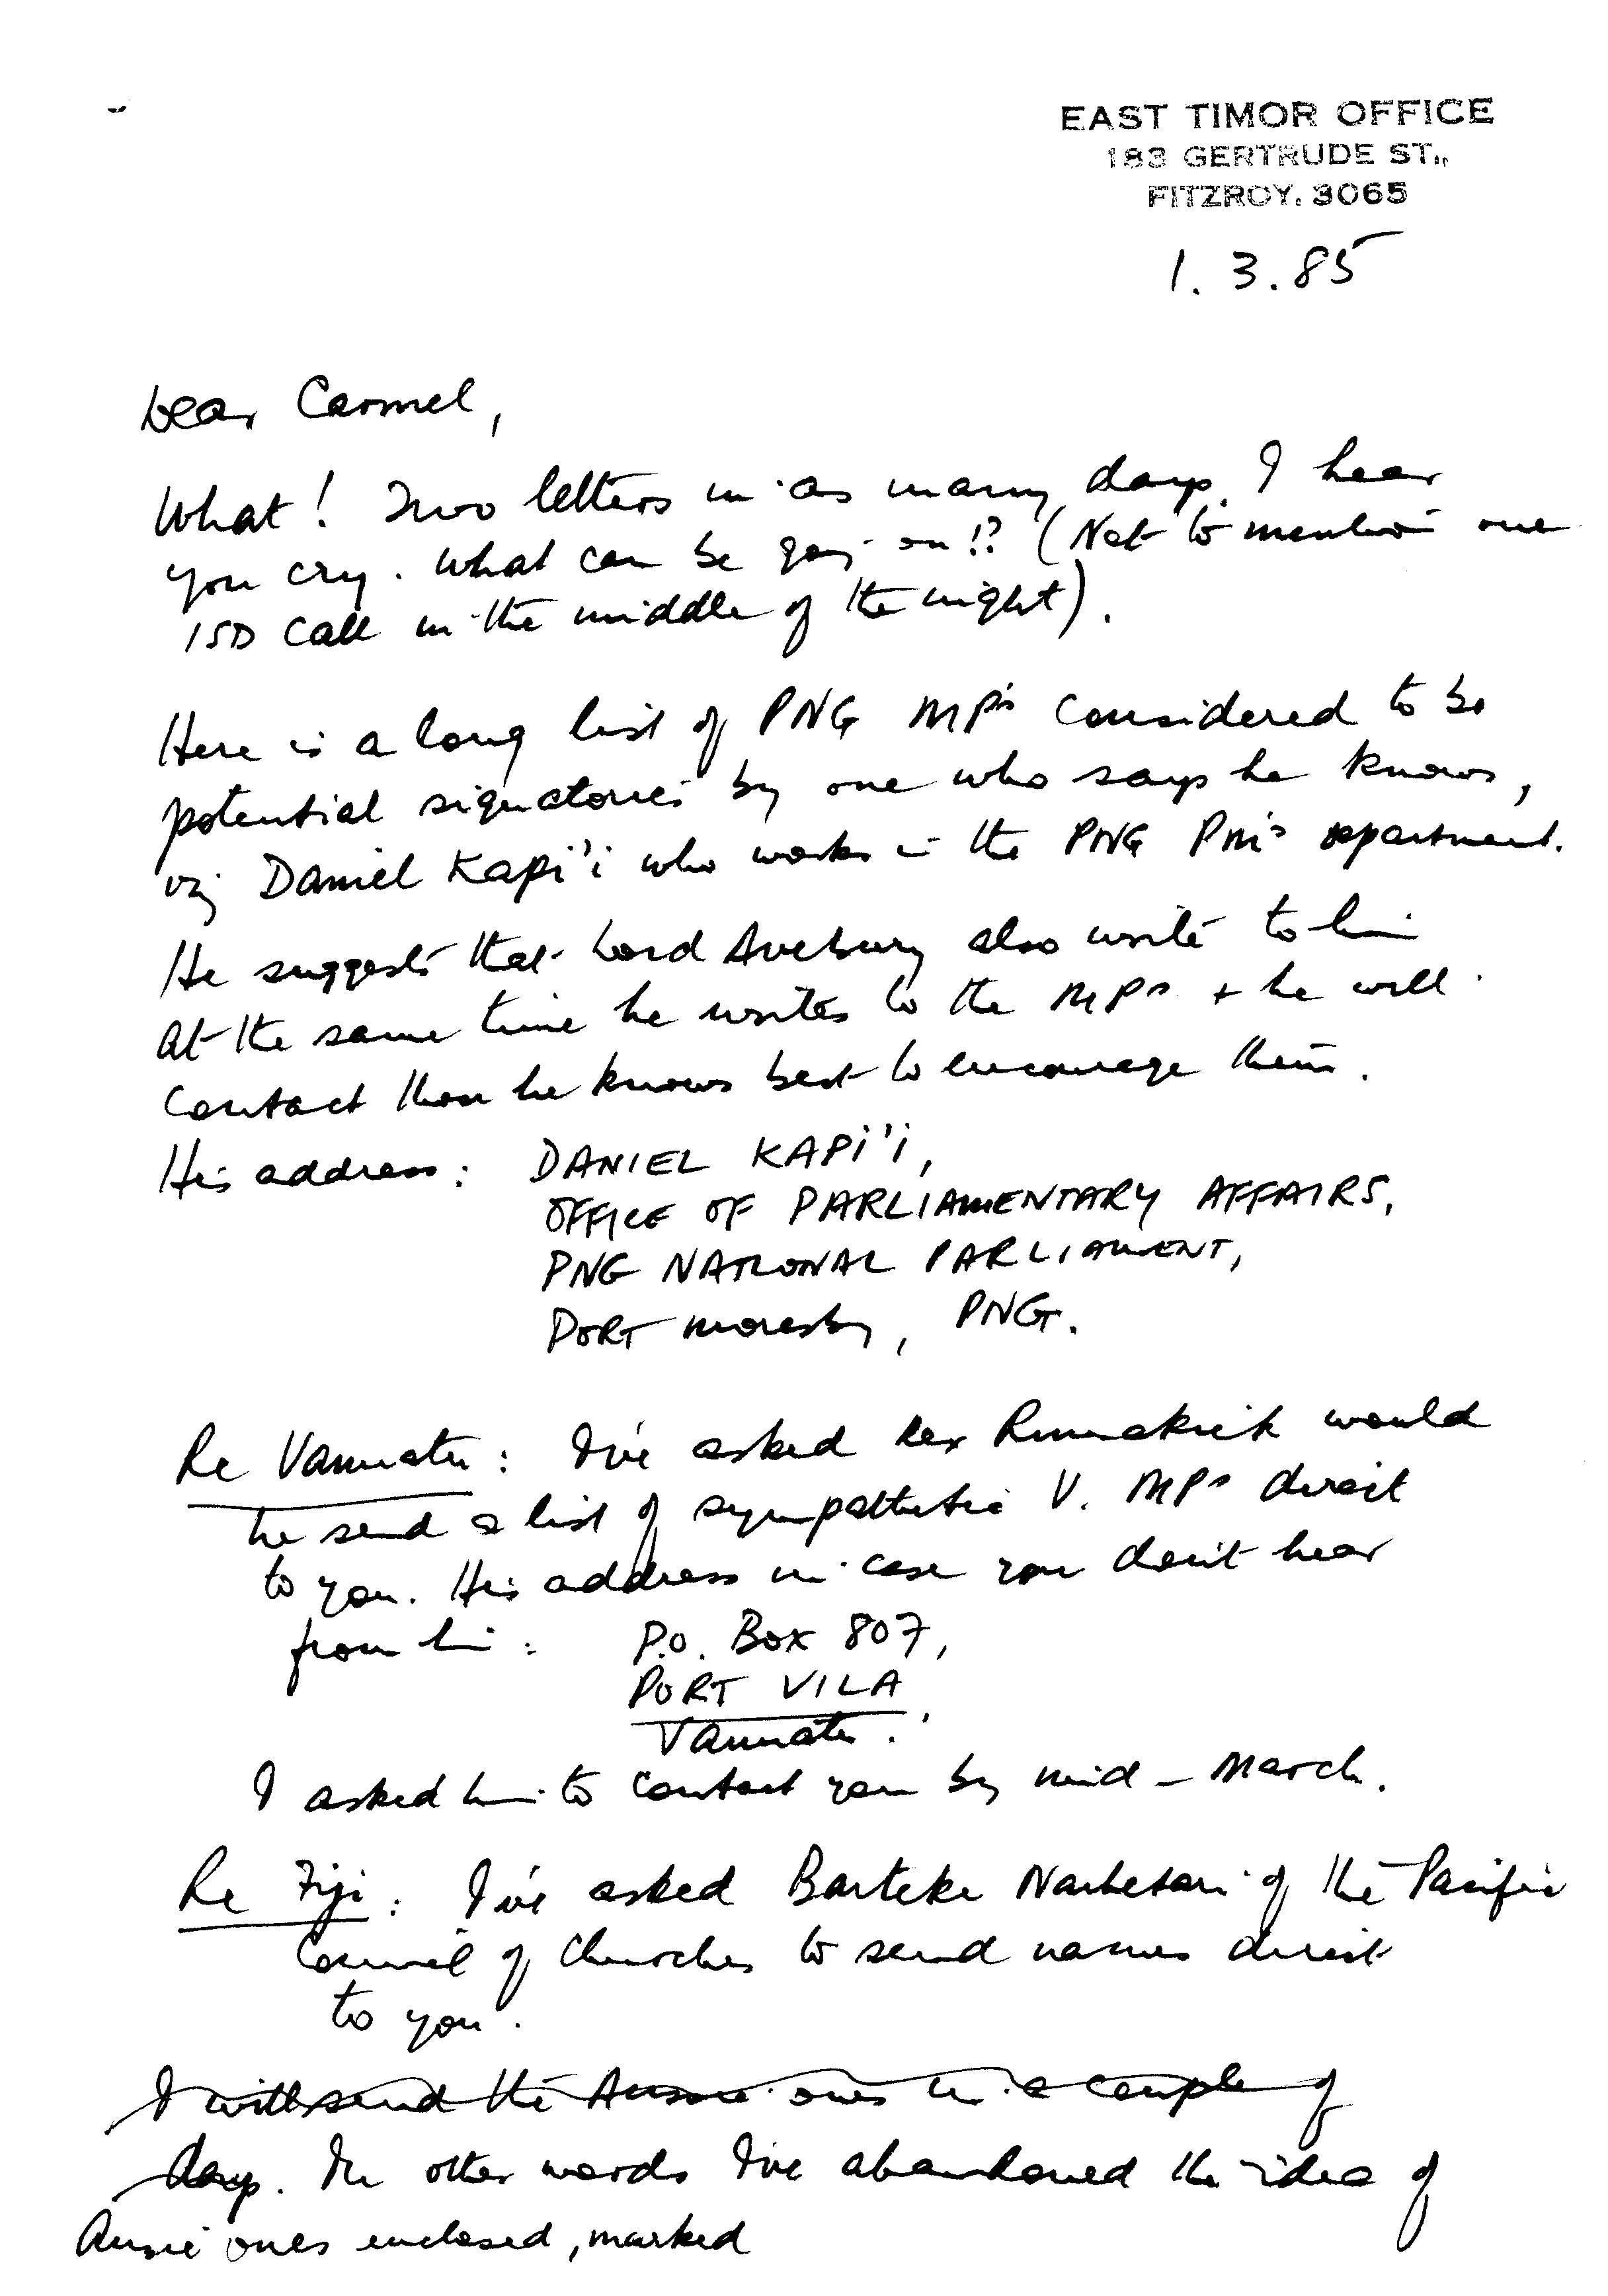 EAST TIMOR OFFICE
183 GERTRUDE ST.,
FITZROY. 3065
1. 3. 85
Dear Carmel,
What! Two letters in as many days, I hear
you cry. What can be going on!? (Not to mention one
ISD call in the middle of the night).
Here is a long list of PNG MPs considered to be
potential signatories by one who says he knows,
viz Daniel Kapi'i who works in the PNG PM's department.
He suggests that Lord Avebury also write to him
at the same time he writes to the MPs + he will
contact those he knows best to encourage them.
His address: DANIEL KAPI'I,
OFFICE OF PARLIAMENTARY AFFAIRS,
PNG NATIONAL PARLIAMENT,
PORT Moresby, PNG.
Re Vanuatu: I've asked Rex Rumakiek would
he send a list of sympathetic V. MPs direct
to you. His address in case you don't hear
from him: P.O. Box 807,
PORT VILA
Vanuatu.
I asked him to contact you by mid-March.
Re Fiji: I've asked Barteke of the Pacific
Council of Churches to send names direct
to you.
I will send the Aussie ones in a couple of
days. In other words I've abandoned the idea of
Aussie ones enclosed, marked